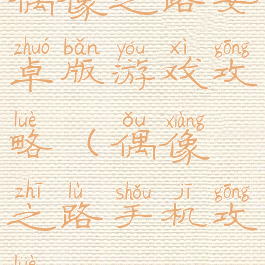 偶像之路安
zhuó bǎn yóu xì gōng
卓版游戏攻
luè ǒu xiàng
略（偶像
zhī lù shǒu jī gōng
之路手机攻
luè